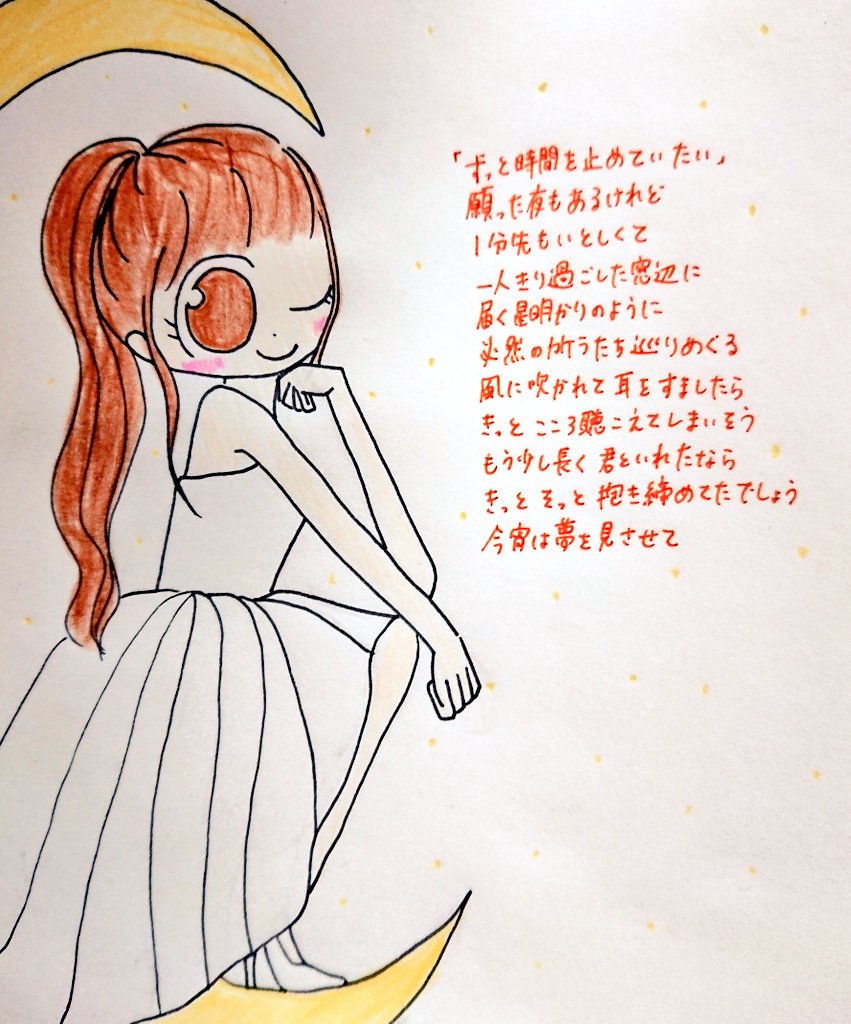 「ずっと時間を止めていたい」
願った夜もあるけれど
1分先もいとしくて
一人きり過ごした窓辺に
届く星明かりのように
必然の所うたち巡りめぐる
風に吹かれて耳をすましたら
きっとこころ聴こえてしまいそう
もう少し長く君といれたなら
きっとそっと抱き締めてたでしょう
今宵は夢を見させて